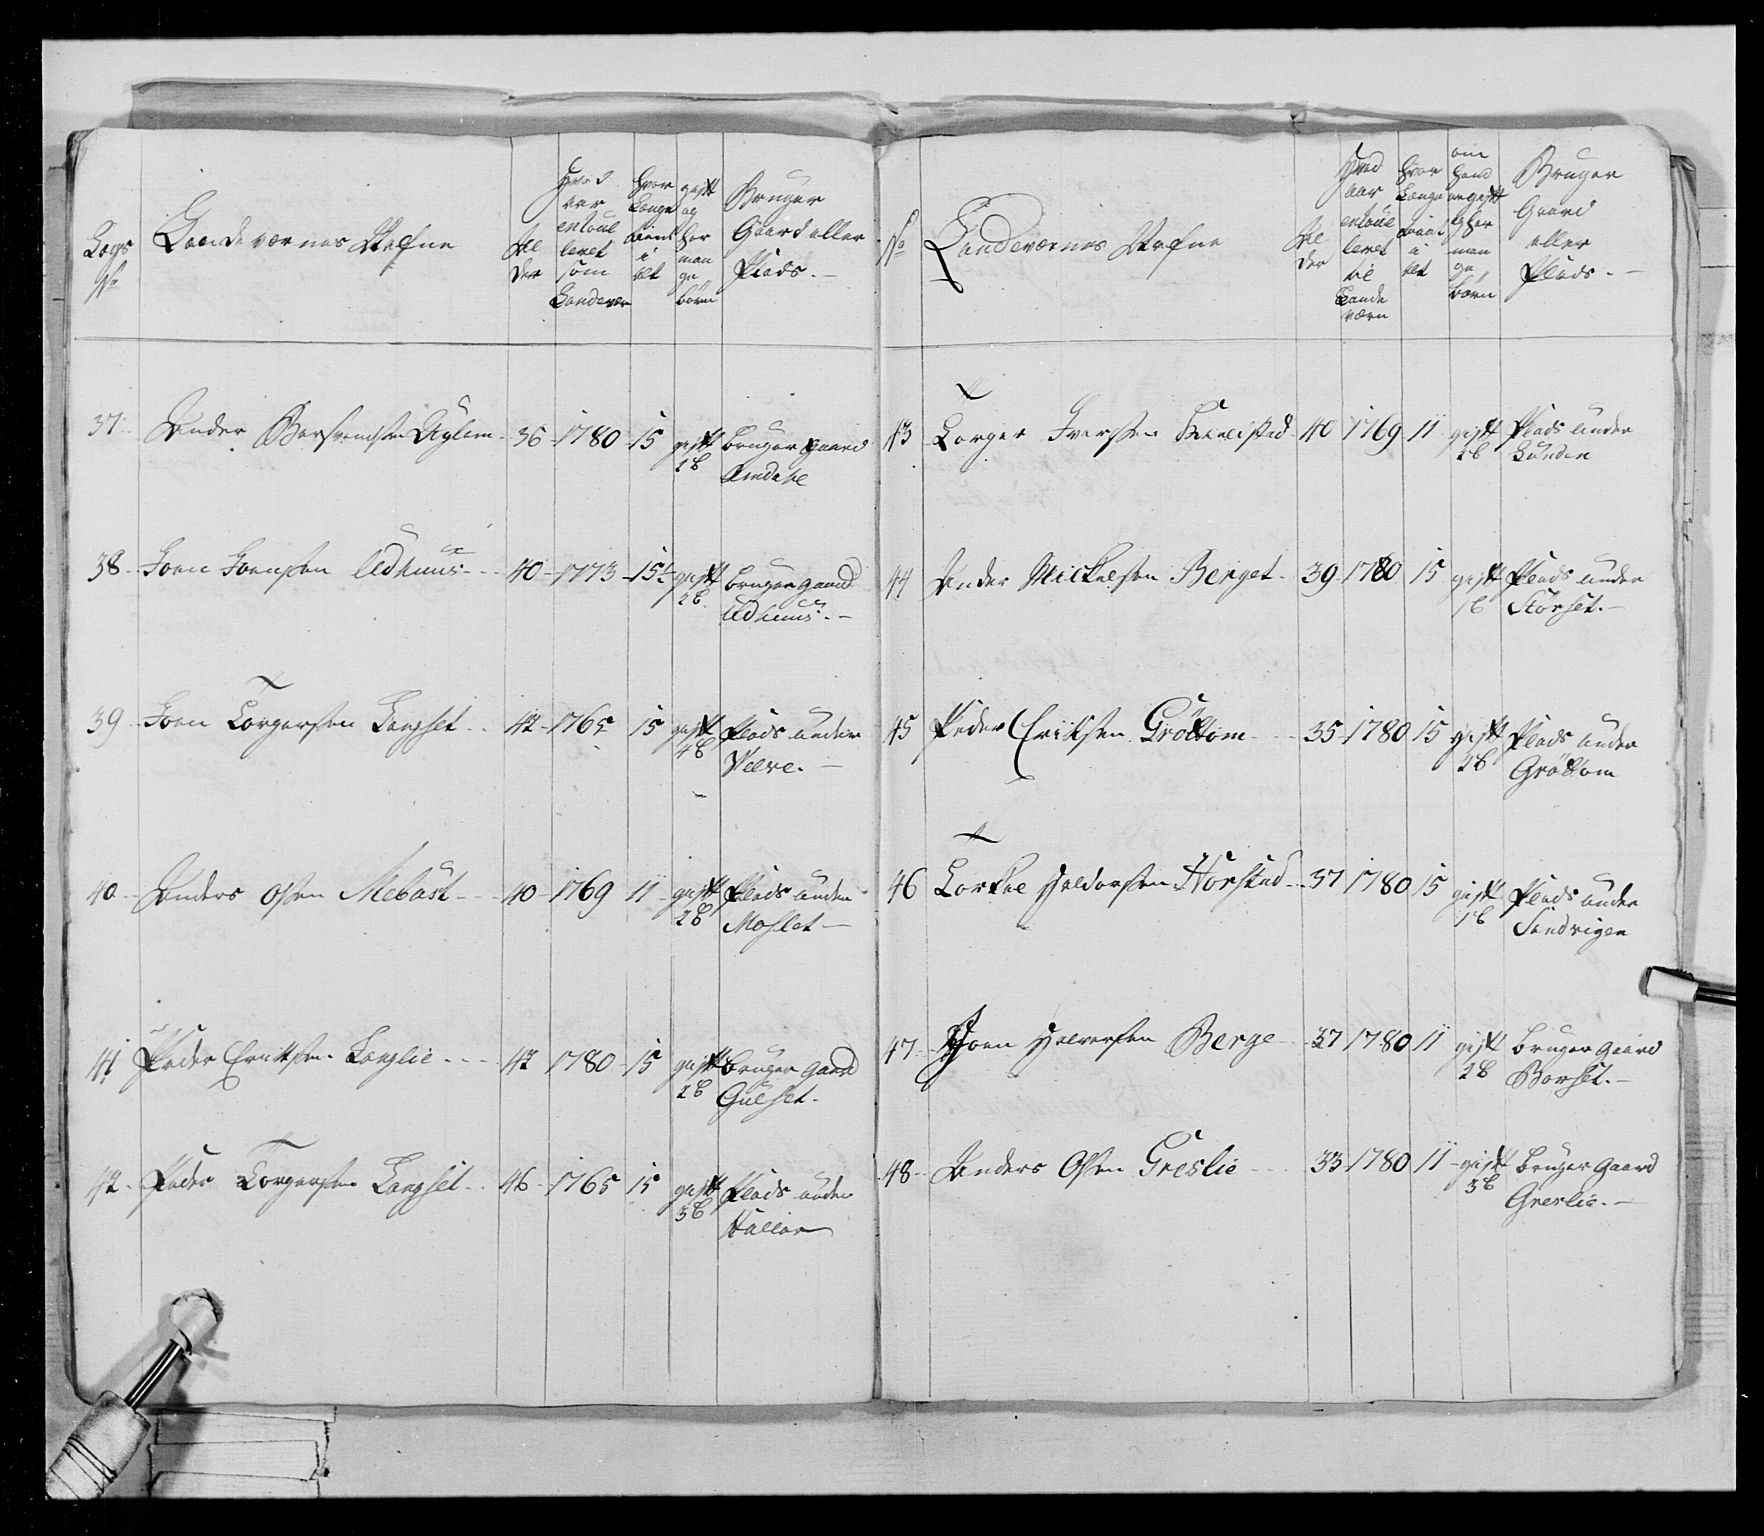 Lægs
No
Landeværnes Nafne
Al
der
Hvad
aar
enroul
leret
som
Landevær
hvor
Længe
tient
i
alt
gift
og
hvor
man
ge
børn
Bruger
Gaard eller
Plads. -
37. Ander Aglem - 36 - 1780 - 15 gift bruger gaard
2 B
38. Joen Joensen Udhuus - 40 - 1773 - 15 gift bruger gaard
2 B Udhuus. -
39. Joen Torgersen Langset - 42 - 1765 15 gift Plads under
4 B
40. Anders Olsen Mebust - 40 - 1769 11 - gift Plads under
2 B Moslet -
41 Peder Erichsen Langlie - 42 1780 - 15 gift bruger gaard
2 B Gulset.
42. Peder Torgersen Langset - 46 - 1765 15 gift Plads under
3 B
No
Landeværnes Nafne
Al
der
Hvad
aar
enroul
leret
til
Lande
værn
hvor
Længe
tient
i
alt
om
hand
er gift
og hvor
man
ge
børn
Bruger
Gaard
eller
Plads. -
43 Torger Iversen 40 1769 11 gift Plads under
2 B
44 Ander Mickelsen Berget - 39 - 1780 15 gift Plads under
1 B Storset. -
45 Peder Eriksen Grøttom - 35 - 1780 15 gift Plads under
2 B Grøttom
46 Torkel Haldorsen Horstad - 37 1780 15 gift Plads under
1 B Sandvigen
47. Joen Halvorsen Berge - 37 1780 11 gift bruger gaard
2 B Borset. -
48. Anders Olsen Greslie - 33 - 1780 11 - gift bruger gaard
3 B Greslie. -